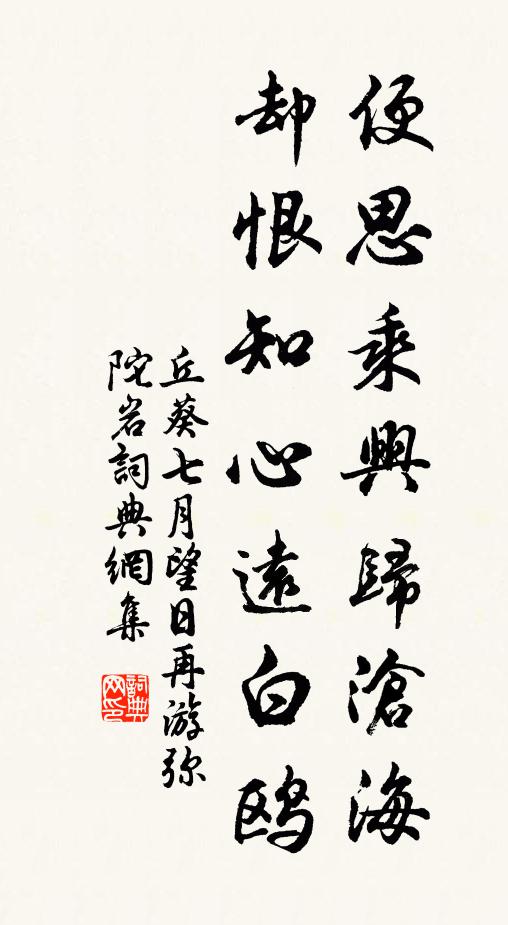 便思乘興歸滄海
却恨知心遠白鸥
丘葵七月望日再游弥
陀岩詞典網集
詞典
网印